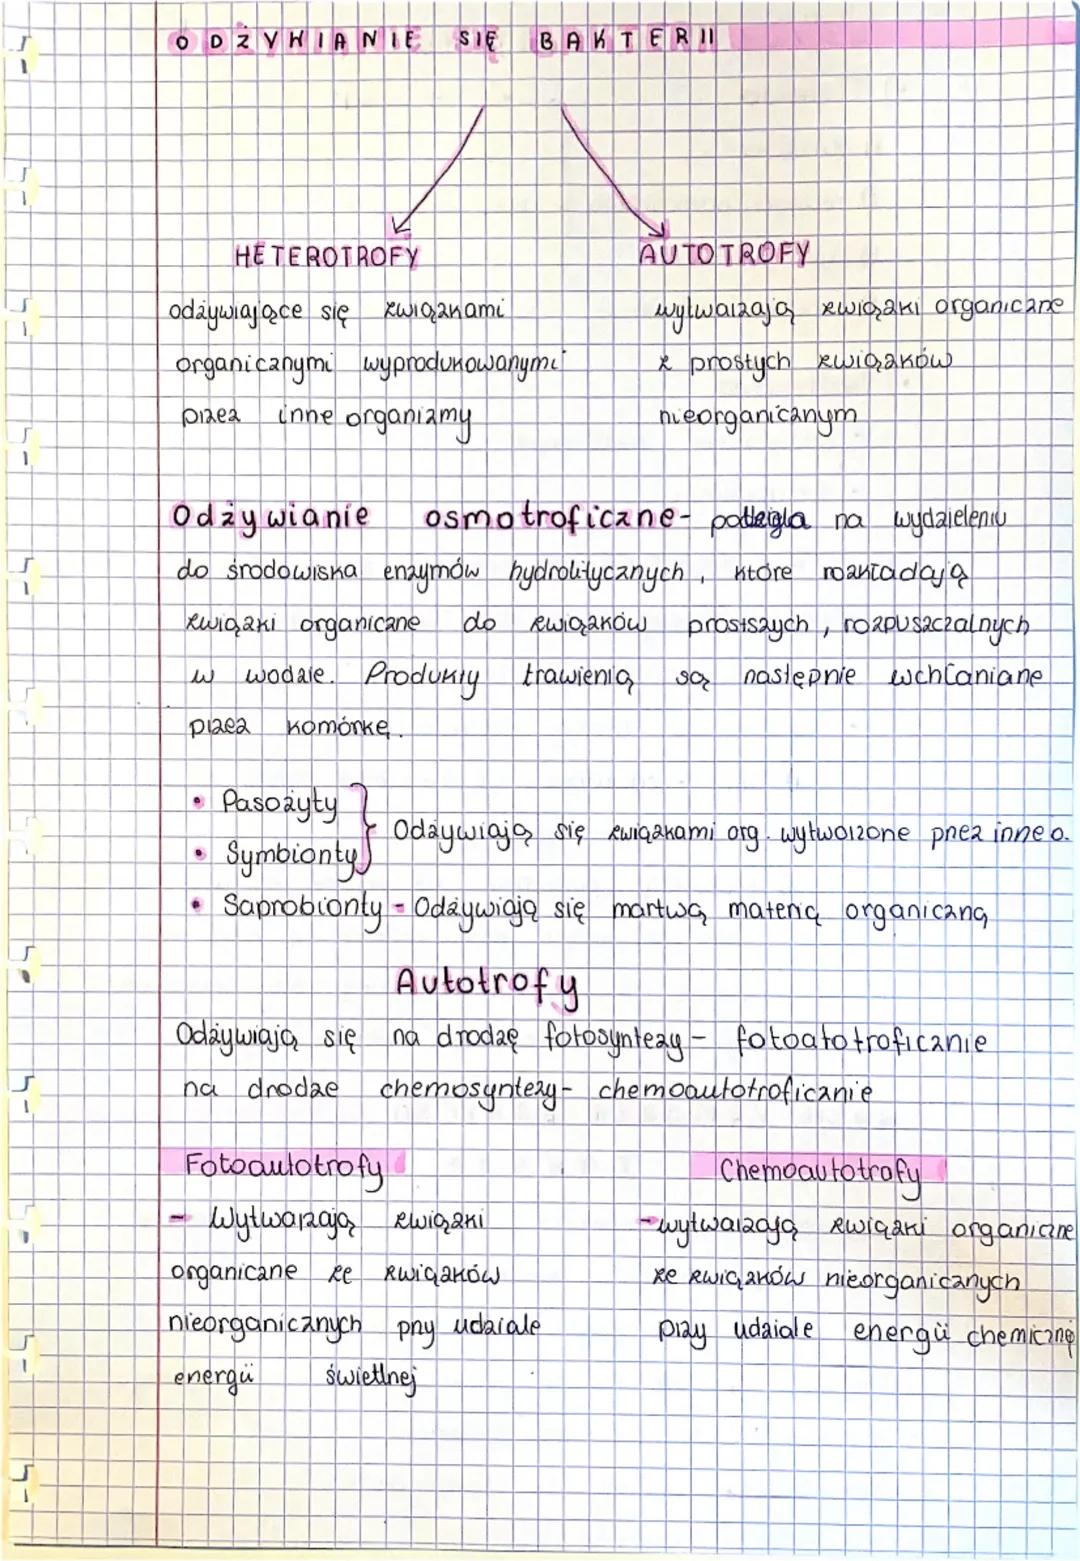 ODŻYWIANIE SIĘ BAKTERII
HETEROTROFY
AUTOTROFY
odżywiające się związkami
organicznymi wyprodukowanymi
przez inne organizmy
wytwarzają związki organiczne
z prostych związków
nieorganicznym
Odżywianie osmotroficzne- polega na wydzieleniu
do środowiska enzymów hydrolitycznych, które rozkładają
związki organiczne do związków prostszych, rozpuszczalnych
w wodzie. Produkty trawienią są następnie wchłaniane
przez komórkę.
• Pasożyty
• Symbionty
Odżywiają się związkami org. wytworzone przez inne o.
• Saprobionty - Odżywiają się martwą materią organiczną
Autotrofy
Odżywiają się na drodzę fotosyntezy - fotoatotroficznie
na drodze chemosyntezy- chemoautotroficznie
Fotoautotrofy
- Wytwarzają związki
organiczne ze związków
nieorganicznych przy udziale
energii świetlnej
Chemoautotrofy
-wytwarzają związki organiczne
ze związków nieorganicznych
przy udziale energii chemicznej